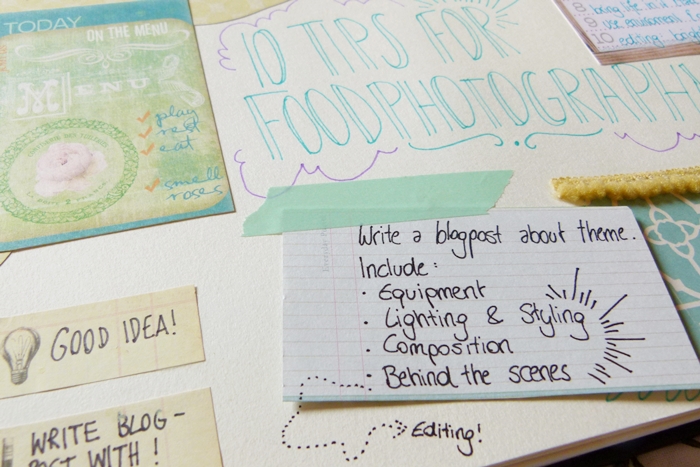 TODAY
ON THE MENU
MENU
play
rest
eat
smell
roses
10 TIPS FOR
FOODPHOTOGRAPHY
8 bring life in
9 use
10 editing
Write a blogpost about theme.
Include:
· Equipment
· Lighting & Styling
· Composition
· Behind the scenes
Editing!
GOOD IDEA!
WRITE BLOG-
POST WITH!